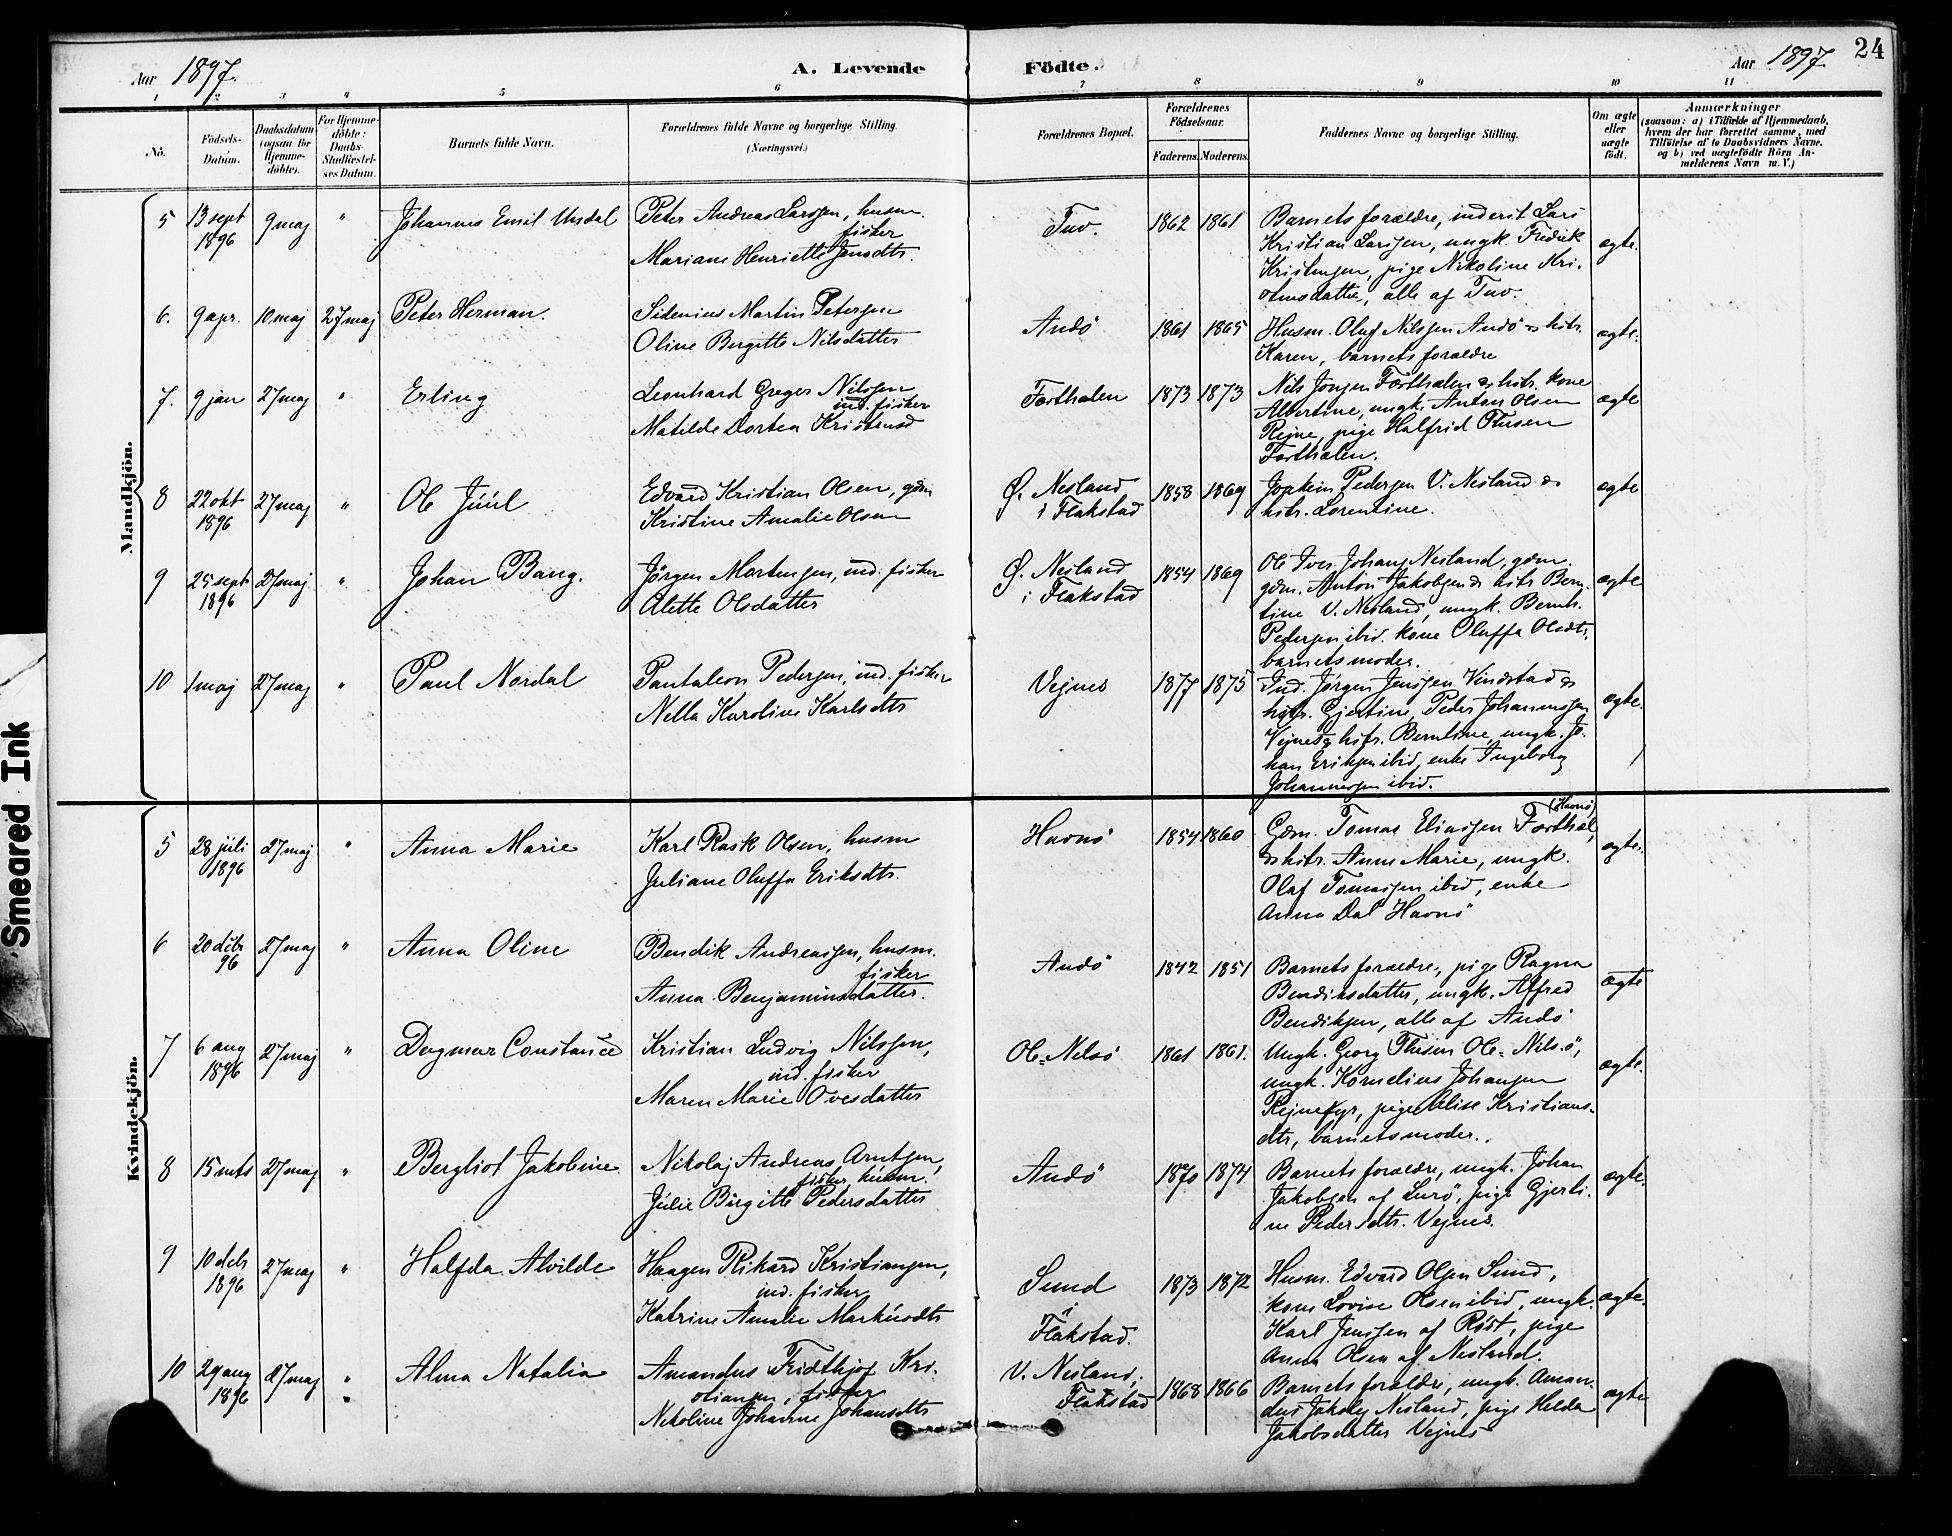 24
Aar 1897.
A. Levende
Födte.
Aar 1897
1 2 3 4 5 6 7 8 9 10 11
No.
Födsels-
Datum.
Daabsdatum
(ogsaa for
Hjemme-
döbte).
For Hjemme-
döbte:
Daabs-
Stadfæstel-
ses Datum.
Barnets fulde Navn.
Forældrenes fulde Navne og borgerlige Stilling
(Næringsvei.)
Forældrenes Bopæl.
Forældrenes
Födselsaar.
Faderens. Moderens.
Faddernes Navne og borgerlige Stilling.
Om ægte
eller
uægte
födt.
Anmærkninger
(saasom: a) i Tilfælde af Hjemmedaab,
hvem der har forrettet samme, med
Tilföielse af to Daabsvidners Navne.
og b) ved uægtefödte Börn An-
melderens Navn m. V.)
Mandkjön.
5
13 sept
1896
9 maj
"
Johannes Emil
Peter Andreas Larssen, husm.
fisker
Mariane Henriette Jensdtr.
Tuv.
1862
1861
Barnets forældre, inderst Lars
Kristian Larssen, ungk. Fredrik
Kristensen, pige Nikoline Kri-
stensdatter, alle af Tuv.
ægte.
6.
9 apr.
10. maj
27 maj
Peter Herman.
Sidenius Martin Petersen
Oline Bergitte Nilsdatter
Andö
1861
1865
Husm. Oluf Nilssen Andö & hstr.
Karen, barnets forældre
ægte.
7.
9 jan
27 maj
"
Erling
Leonhard Greger Nilssen
ind. fisker
Matilde Dortea Kristensd
Forsthalen
1873
1873
Nils Jonsen Forsthalen & hstr. kone
Albertine, ungk. Anton Olsen
Rejne, pige Halfrid
Forsthalen.
ægte
8
22 okt
1896
27 maj
"
Ole Júúl
Edvard Kristian Olsen, gdm
Kristine Amalie Olsen
Ø. Nesland
i Flakstad
1858
1869
Joakim Pedersen V. Nesland &
hstr. Lorentine.
ægte
9
25 sept
1896
27 maj
"
Johan Bang.
Jörgen Mortensen, ind. fisker
Alette Olsdatter
Ø. Nesland
i Flakstad
1854
1869
Ole Iver Johans Nesland, gdm.
gdm. Anton Jakobsen & hstr Bern-
tine V. Nesland, ungk. Bernh.
Pedersen ibid. kone Oluffa Olsdtr,
barnets moder.
ægte
10
1 maj
27 maj
"
Paul Nordal
Pantaleon Pedersen, ind. fisker
Nella Karoline Karlsdtr
Vejnes
1877
1875
Ind. Jörgen Jenssen Vindstad &
hstr. Gjertine, Peder Johannessen
Vejnes & hstr. Berntine, ungk. Jo-
han Eriksen ibid, enke Ingeborg
Johannessen ibid.
ægte.
Kvindekjön.
5
28 juli
1896
27 maj
"
Anna Marie
Karl Rask Olsen, husm
Juliane Oluffa Eriksdtr.
Havnö
1854
1860
(Havnö)
Gdm. Tomas Eliassen Forsthal,
& hstr. Anne Marie, ungk.
Olaf Tomassen ibid, enke
Anna Dal Havnö
ægte.
6
20 dcbr
96
27 maj
"
Anna Oline
Bendik Andreassen, husm.
fisker
Anna Benjaminsdatter.
Andö
1842
1851
Barnets forældre, pige Ragna
Bendiksdatter, ungk. Alfred
Bendiksen, alle af Andö
ægte
7
6 aug
1896
27 maj
"
Dagmar Constance
Kristian Ludvig Nilssen,
ind. fisker
Maren Marie Ovesdatter
Ole=Nilsö
1861
1861.
Ungk. Georg Ole=Nilsö,
ungk. Kornelius Johansen
Rejnefyr, pige Alise Kristians-
dtr, barnets moder.
ægte.
8
15 mts
27 maj
"
Bergliot Jakobine
Nikolaj Andreas Arntsen,
fisker, husm.
Júlie Birgitte Pedersdatter
Andö
1870
1874
Barnets forældre, ungk. Johan
Jakobsen af Lurö, pige Gjerti-
ne Pedersdtr. Vejnes.
ægte.
9
10 dcb
1896
27 maj
"
Halfda Alvilde
Haagen Rikard Kristiansen,
ind. fisker
Katrine Amalie Markúsdtr
Sund
i
Flakstad.
1873
1872
Husm. Edvard Olsen Sund,
kone Lovise Olsen ibid, ungk.
Karl Jenssen af Röst, pige
Anna Olsen af Nesland.
ægte.
10
29 aug
1896
27 maj
"
Alma Natalia
Amandus Fridthjof Kri-
stiansen, i. fisker
Nikoline Johanne Johansdtr
V. Nesland,
Flakstad
1868
1866
Barnets forældre, ungk. Aman-
dus Jakobs Nesland, pige Helda
Jakobsdatter Vejnes
ægte
Smeared Ink